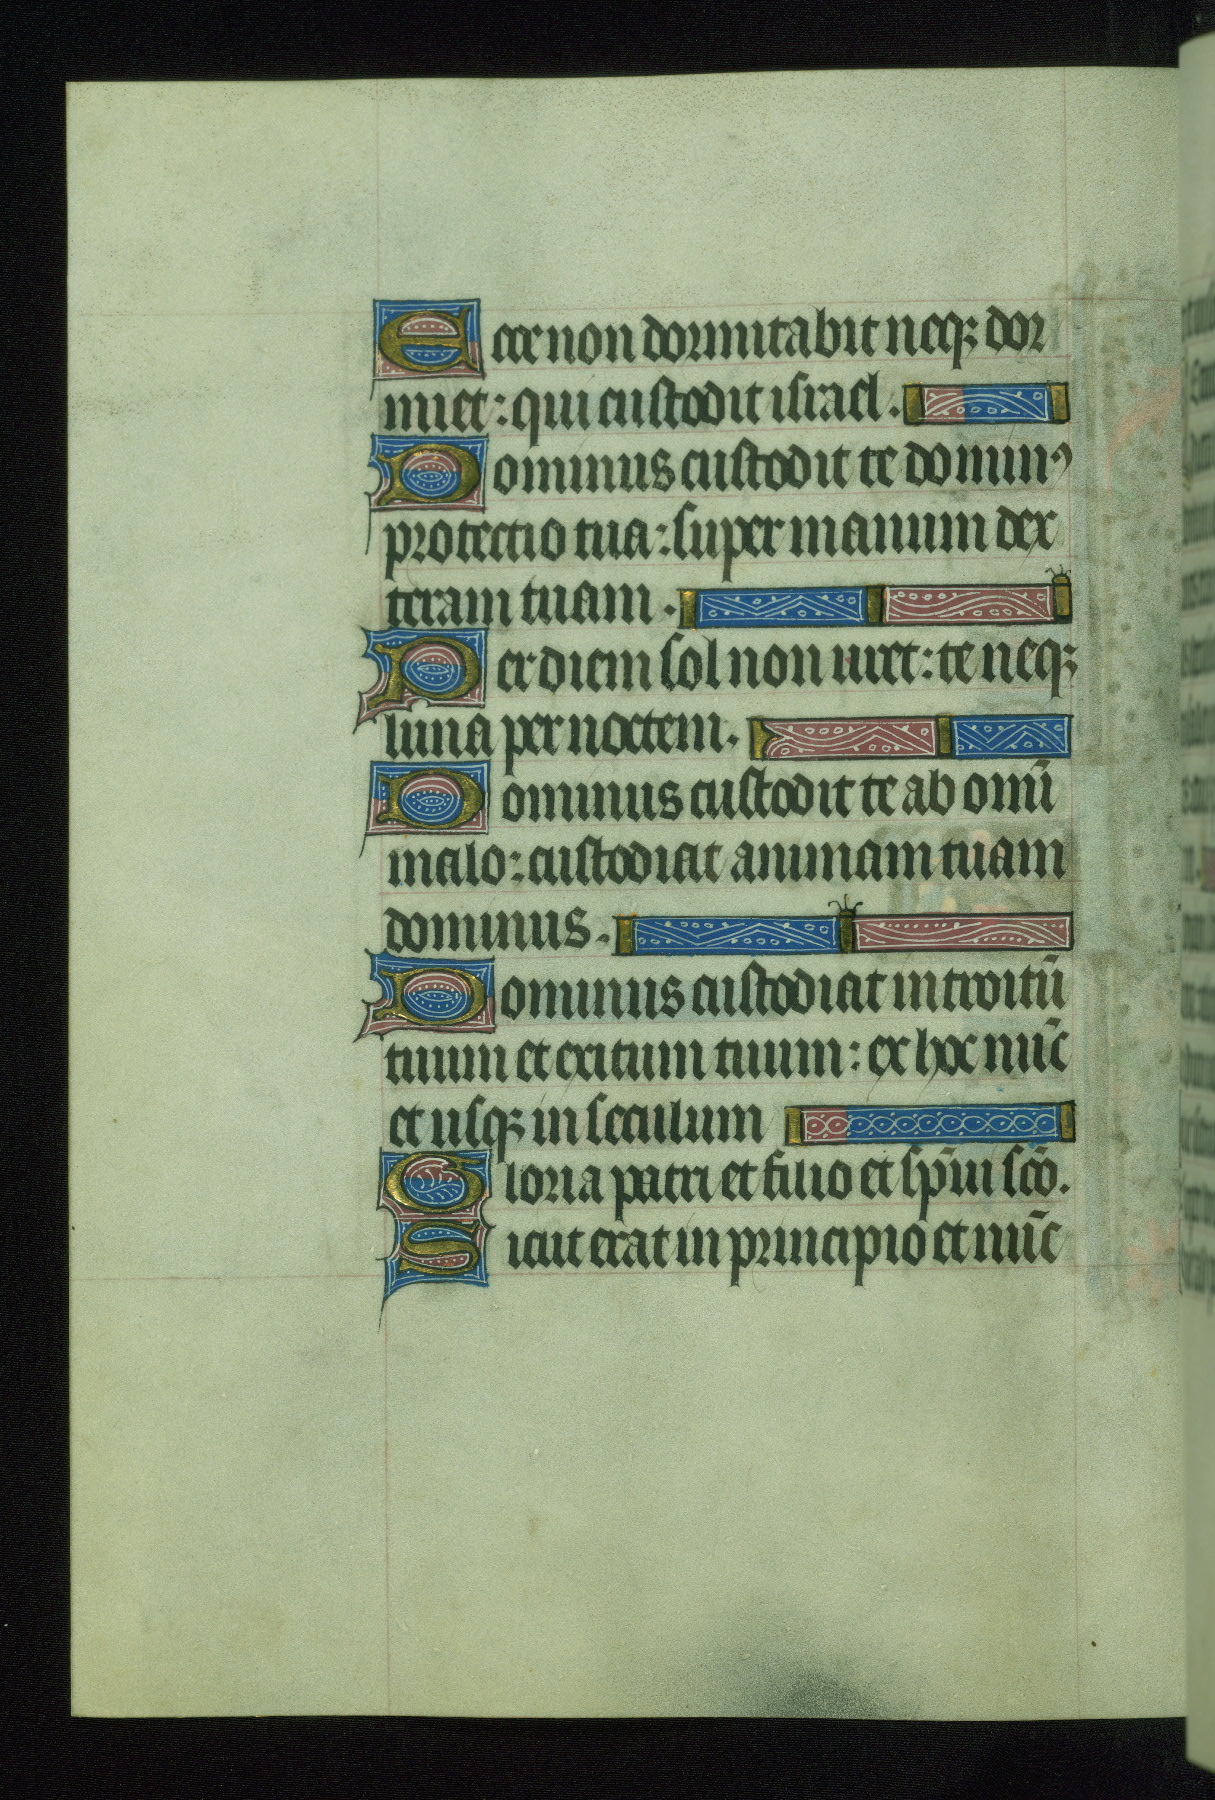 Ecce non dormitabit neq; dor
miet: qui custodit israel.
Dominus custodit te dominꝰ
protectio tua: super manum dex
teram tuam.
Per diem sol non uret: te neq;
luna per noctem.
Dominus custodit te ab omī
malo: custodiat animam tuam
dominus.
Dominus custodiat introitū
tuum et exitum tuum: ex hoc nūc
et usq; in seculum
Gloria patri et filio et sp̄ui scō.
Sicut erat in principio et nūc